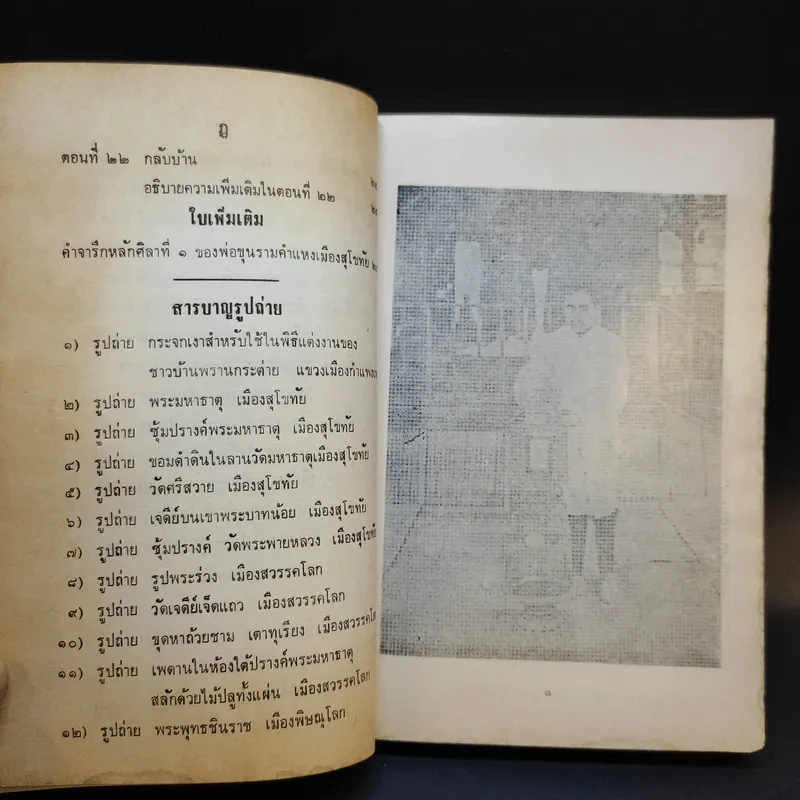 ฎ
ตอนที่ ๒๒ กลับบ้าน
อธิบายความเพิ่มเติมในตอนที่ ๒๒
ใบเพิ่มเติม
คำจารึกหลักศิลาที่ ๑ ของพ่อขุนรามคำแหงเมืองสุโขทัย
สารบาญรูปถ่าย
๑) รูปถ่าย กระจกเงาสำหรับใช้ในพิธีแต่งงานของ
ชาวบ้านพรานกระต่าย แขวงเมืองกำแพง
๒) รูปถ่าย พระมหาธาตุ เมืองสุโขทัย
๓) รูปถ่าย ซุ้มปรางค์พระมหาธาตุ เมืองสุโขทัย
๔) รูปถ่าย ขอมดำดินในลานวัดมหาธาตุเมืองสุโขทัย
๕) รูปถ่าย วัดศรีสวาย เมืองสุโขทัย
๖) รูปถ่าย เจดีย์บนเขาพระบาทน้อย เมืองสุโขทัย
๗) รูปถ่าย ซุ้มปรางค์ วัดพระพายหลวง เมืองสุโขทัย
๘) รูปถ่าย รูปพระร่วง เมืองสวรรคโลก
๙) รูปถ่าย วัดเจดีย์เจ็ดแถว เมืองสวรรคโลก
๑๐) รูปถ่าย ขุดหาถ้วยชาม เตาทุเรียง เมืองสวรรคโลก
๑๑) รูปถ่าย เพดานในห้องใต้ปรางค์พระมหาธาตุ
สลักด้วยไม้ปลูทั้งแผ่น เมืองสวรรคโลก
๑๒) รูปถ่าย พระพุทธชินราช เมืองพิษณุโลก
๑